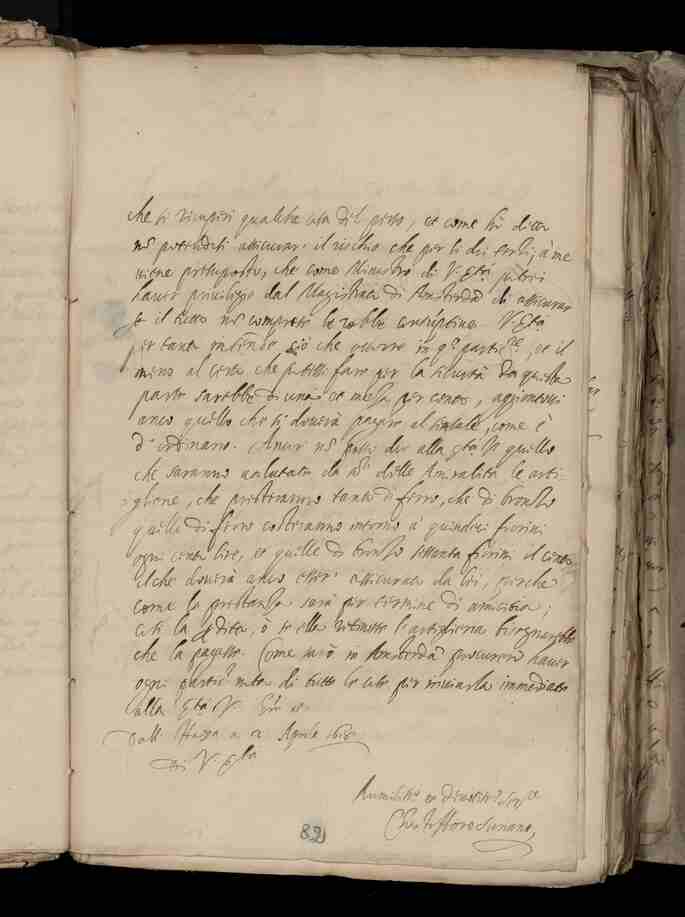 che si ricuperi qualche cosa del perso, et come hò detto
non potendosi assicurar il rischio che per li doi terzi, à me
viene presuposto, che come Ministro di V. Ser.tà potrei
haver privilegio dal Magistrato di Amsterdam di assicurar
il tutto
per tanto intende ciò che occorre in q.o partic.re, et il
meno al certo che potesse fare per la sicurtà da questa
parte sarebbe di uno et mezo per cento, aggiontovi
anco quello che si doverà pagar al sensale, come è
d'ordinario. Ancor non posso dir alla Ser.tà V.ra quello
che saranno valutate da q.i delle Amralità le arti-
gliarie, che presteranno tanto di ferro, che di bronzo
quelle di ferro costeranno intorno à quindeci fiorini
ogni cento lire, et quelle di bronzo sessanta fiorini il cento
il che doverà anco esser assicurato da lei, perche
come la prestanza sarà per termine di amicitia;
così la perdita, ò se ella ritenesse l'artiglieria bisognarebbe
che la pagasse. Come sarò in Amsterdam procurerò haver
ogni partic.r nota di tutte le cose per inviarla immediate
alla Ser.tà V. Gratie etc.
Dall' Haya a 2 Aprile 1618
Di V. Ser.tà
Humiliss.o et devotiss.o Ser.re
Christofforo Suriano
82